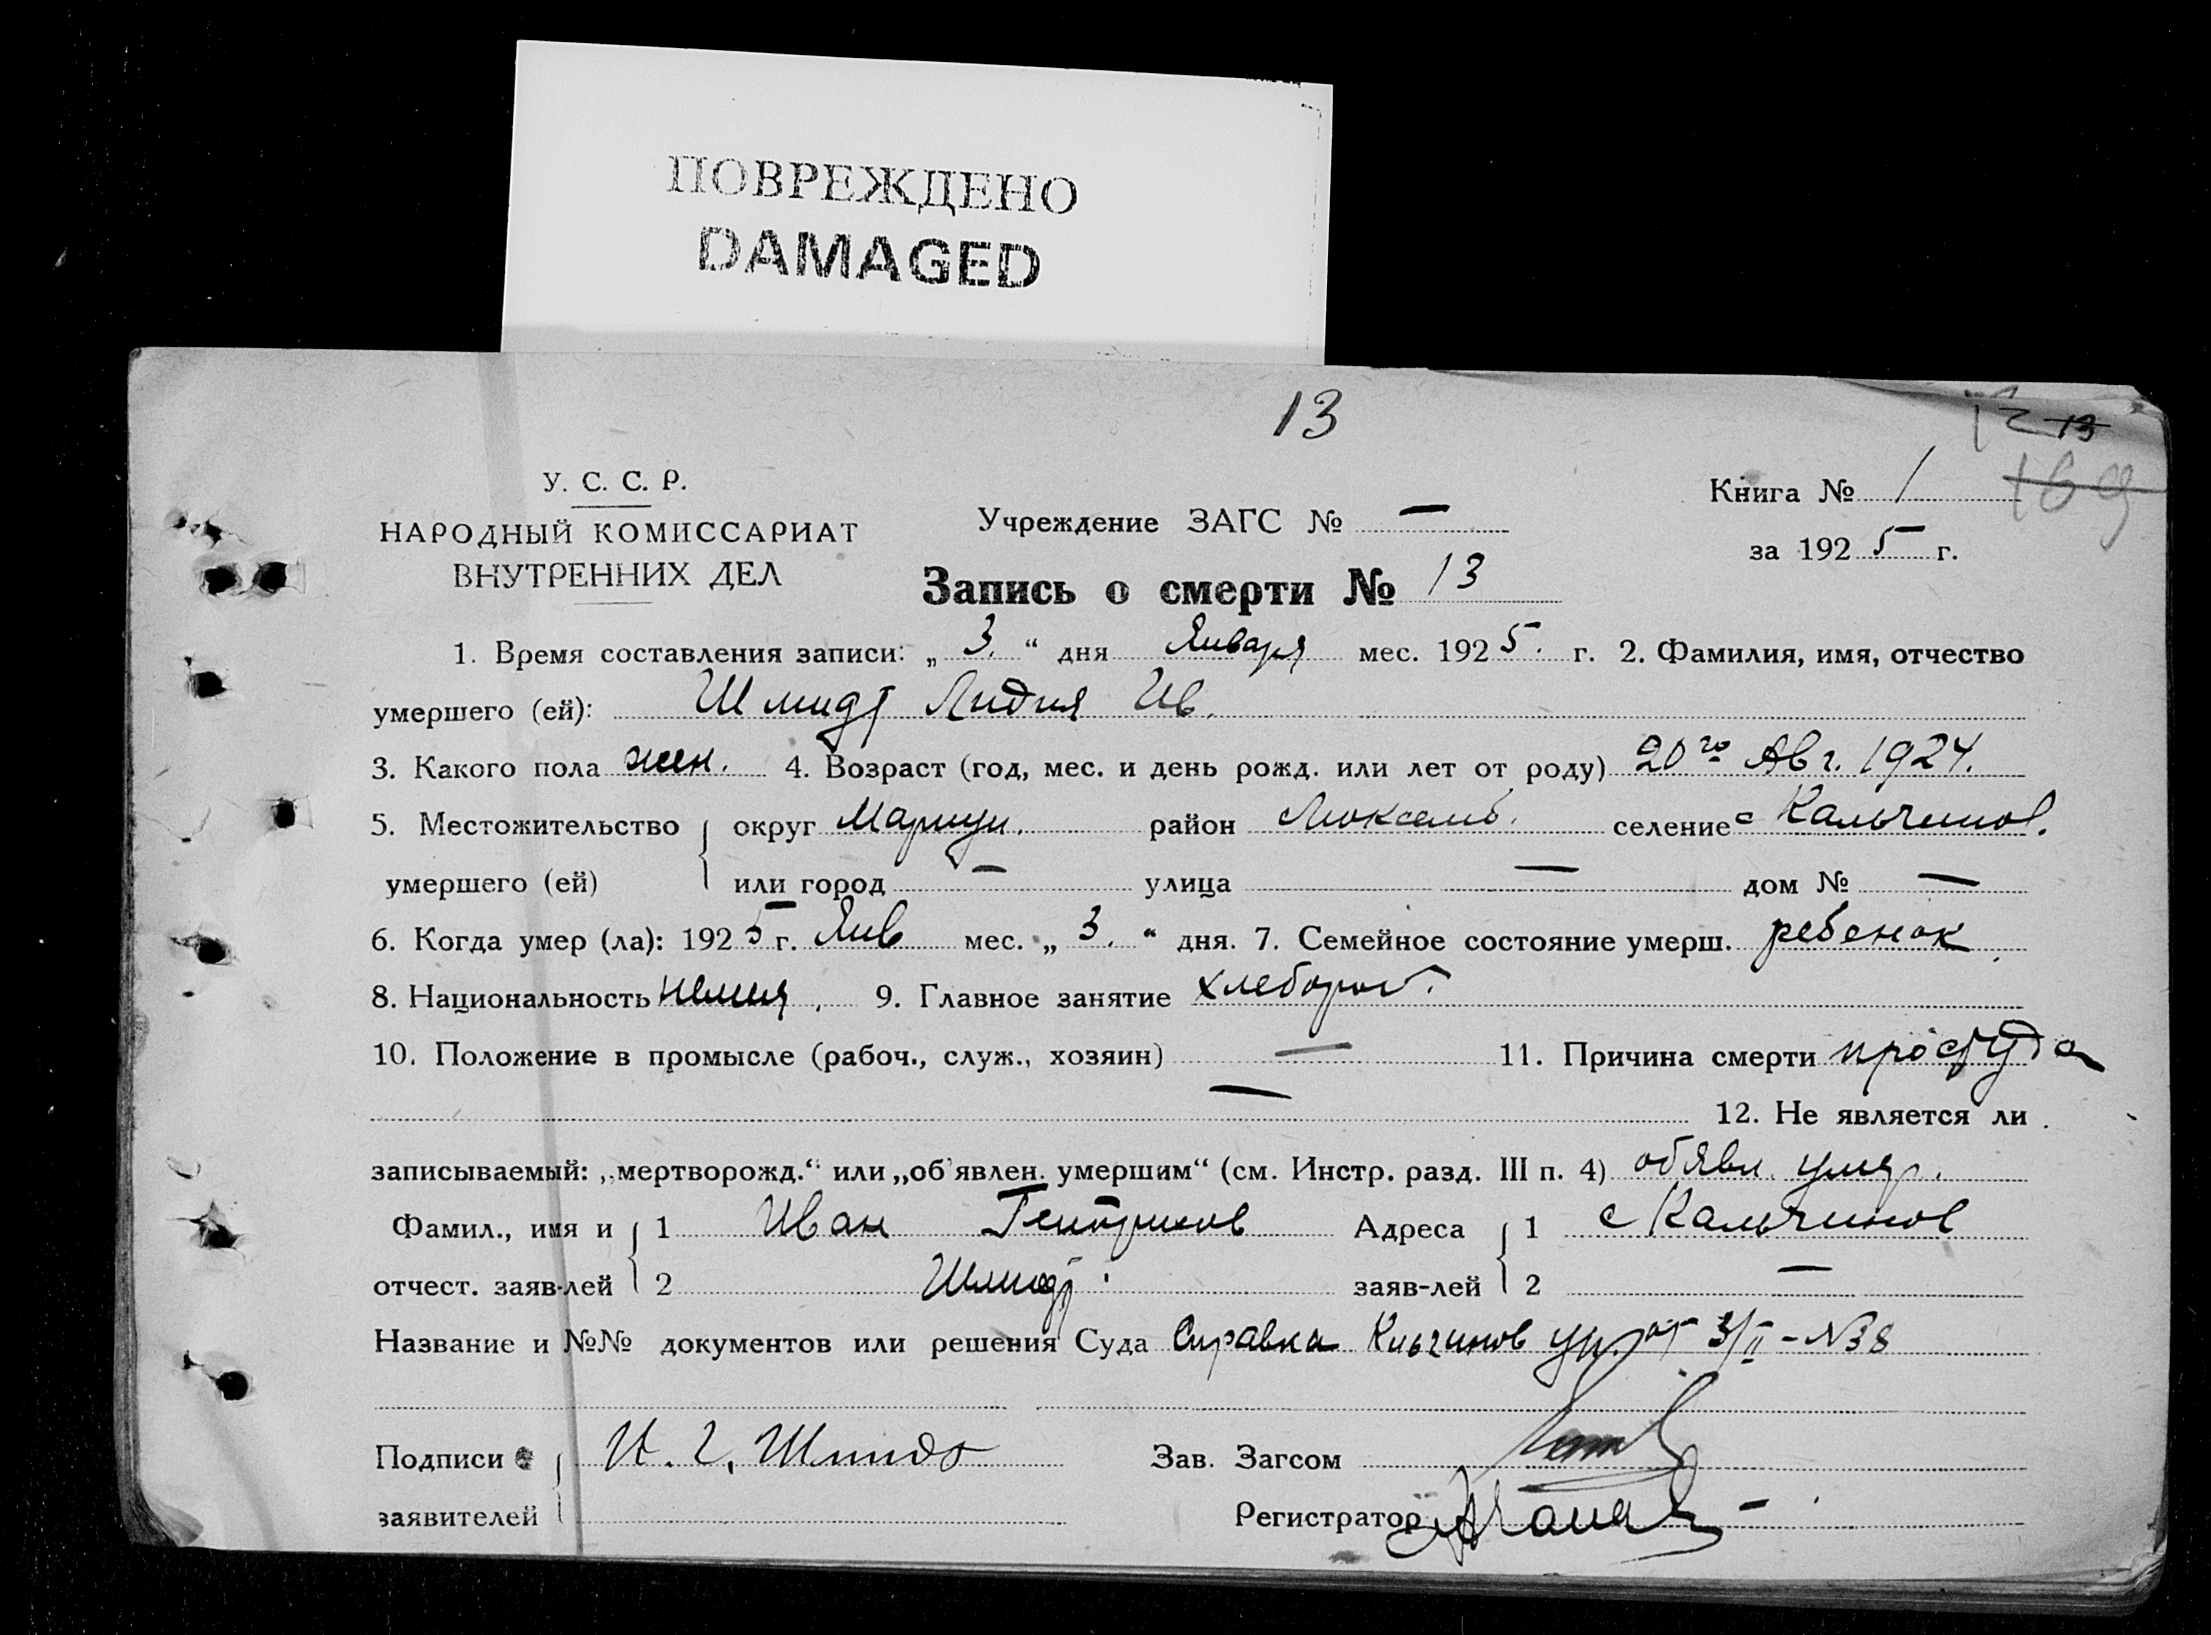 ПОВРЕЖДЕНО
DAMAGED
13
12 13
169
У. С. С. Р.
НАРОДНЫЙ КОМИССАРИАТ
ВНУТРЕННИХ ДЕЛ
Учреждение ЗАГС № —
Книга № 1
за 1925 г.
Запись о смерти № 13
1. Время составления записи: „ 3. “ дня Января мес. 1925. г. 2. Фамилия, имя, отчество
умершего (ей): Шмидт Лидия Ив.
3. Какого пола жен. 4. Возраст (год, мес. и день рожд. или лет от роду) 20го Авг. 1924.
5. Местожительство округ Мариуп. район Люксемб. селение с Кальчинов.
умершего (ей) или город — улица — дом № —
6. Когда умер (ла): 1925 г. Янв мес. „ 3. “ дня. 7. Семейное состояние умерш. ребенок
8. Национальность 9. Главное занятие хлебороб.
10. Положение в промысле (рабоч., служ., хозяин) — 11. Причина смерти простуда
— 12. Не является ли
записываемый: „мертворожд.“ или „об'явлен. умершим“ (см. Инстр. разд. III п. 4) обявл. умер.
Фамил., имя и 1 Иван Генрихов Адреса 1 с Кальчинов
отчест. заяв-лей 2 Шмидт. заяв-лей 2 —
Название и №№ документов или решения Суда Справка от 3/II - №38
Подписи И. Г. Шмидт Зав. Загсом
заявителей Регистратор